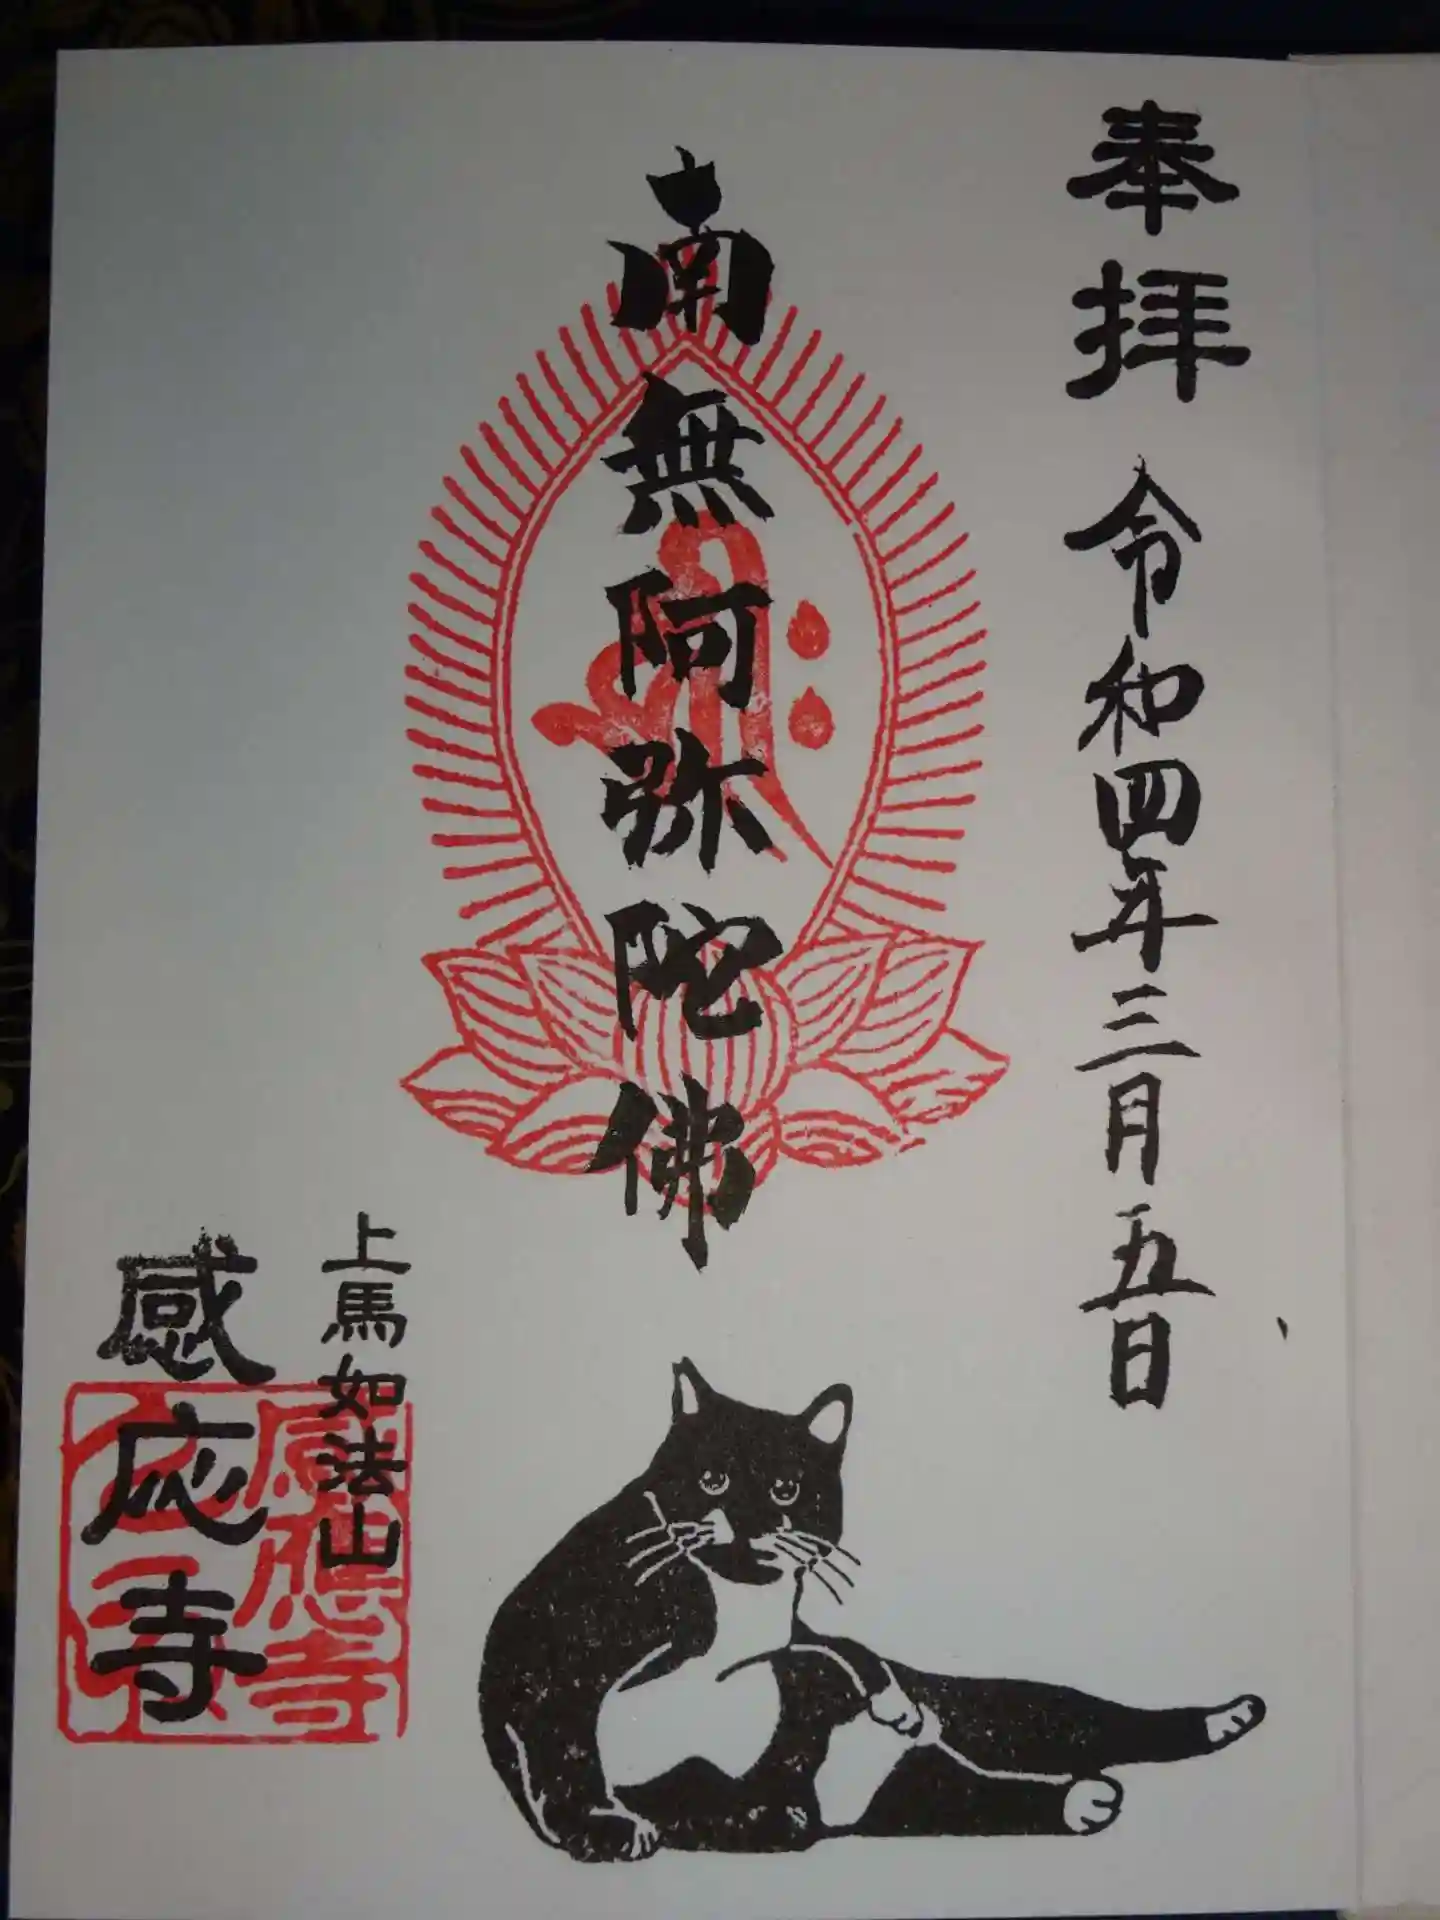 奉拝 令和四年三月五日
南無阿弥陀佛
上馬如法山
感応寺